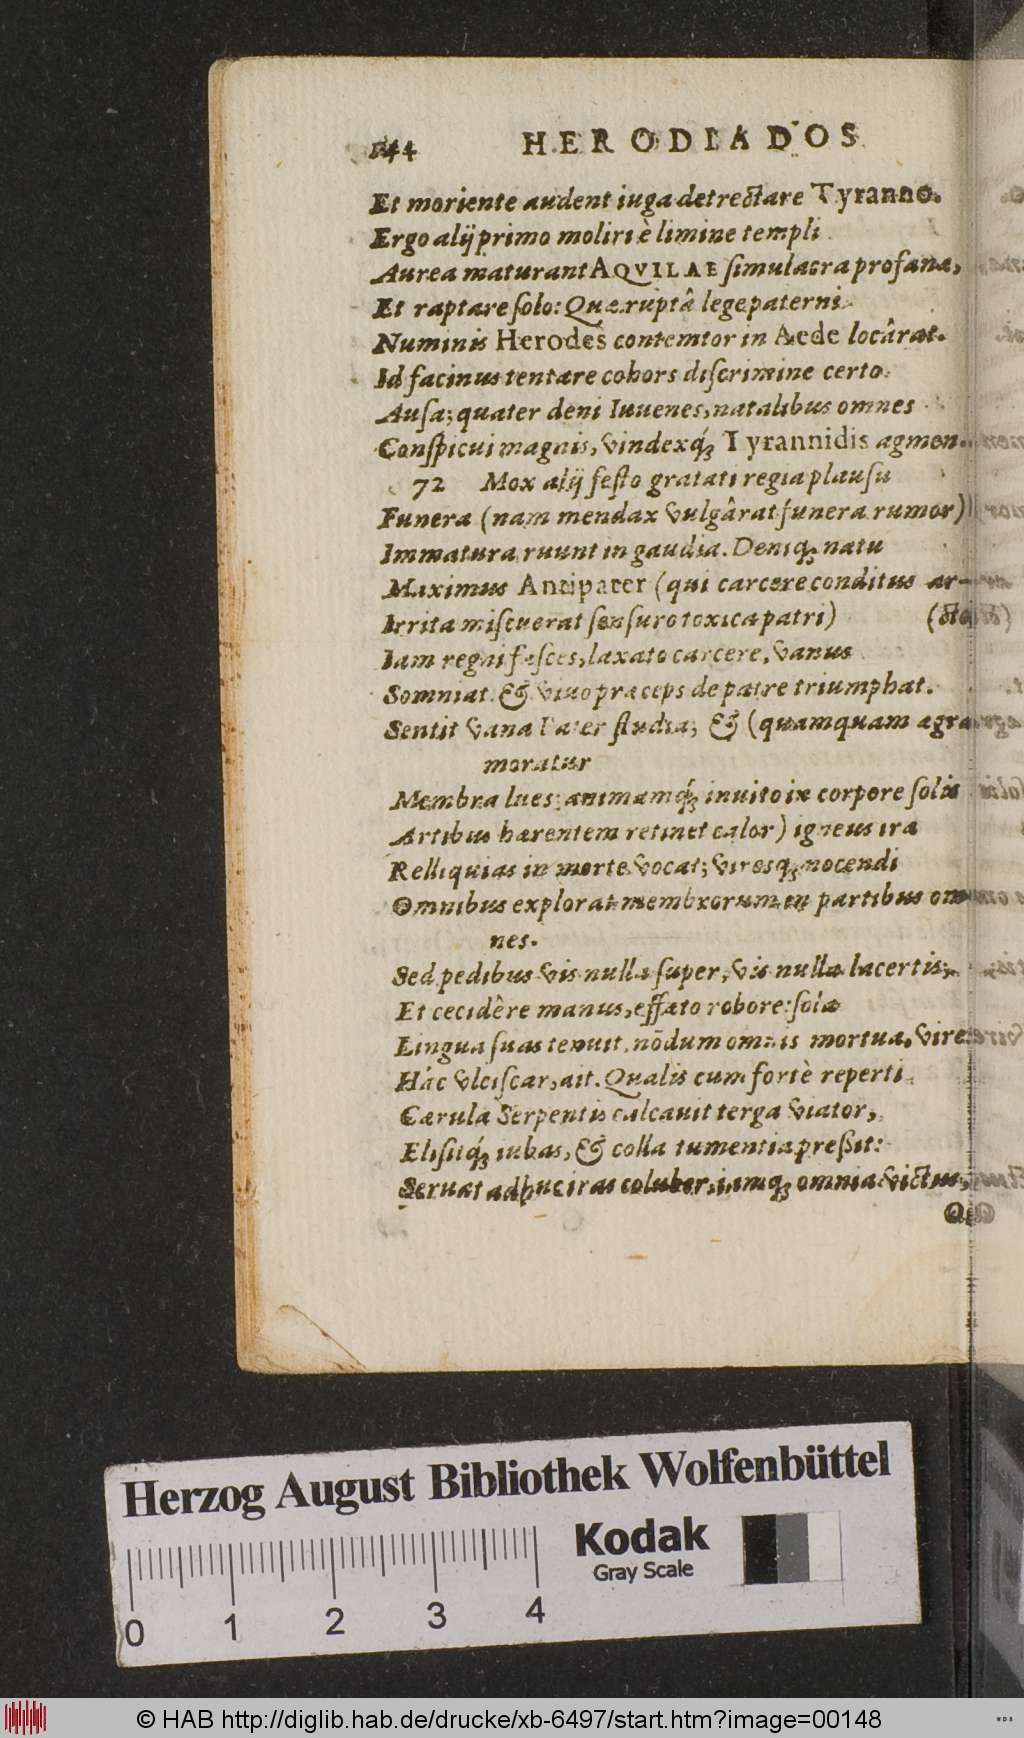 144 HERODIADOS
Et moriente audent iuga detrectare Tyranno.
Ergo alij primo moliri è limine templi
Aurea maturant AQVILAE simulacra profanæ,
Et raptare solo: Quæ ruptâ lege paterni
Numinis Herodes contemtor in Aede locârat.
Id facinus tentare cohors discrimine certo
Ausa; quater deni Iuuenes, natalibus omnes
Conspicui magnis, vindexq́; Tyrannidis agmen.
72 Mox alij festo gratati regia plausu
Funera (nam mendax vulgârat funera rumor)
Immatura ruunt in gaudia. Deniq; natu
Maximus Antipater (qui carcere conditus ar-
Irrita miscuerat sensuro toxica patri) (cto
Iam regni fasces, laxato carcere, vanus
Somniat & viuo præceps de patre triumphat.
Sentit vana Pater studia; & (quamquam ægra
moratur
Membra lues; animamq́; inuito in corpore solis
Artibus hærentem retinet calor) igneus ira
Relliquias in morte vocat; viresq; nocendi
Omnibus explorat membrorum in partibus om
nes.
Sed pedibus vis nulla super, vis nulla lacertis;
Et cecidêre manus, effæto robore: sola
Lingua suas tenuit, nõdum omnis mortua, vires
Hác vlciscar, ait. Qualis cum fortè reperti
Cærula Serpentis calcauit terga viator,
Elisitq́; iubas, & colla tumentia preßit:
Seruat adhuc iras coluber, iamq; omnia victus,
Herzog August Bibliothek Wolfenbüttel
Kodak
Gray Scale
0 1 2 3 4
© HAB http://diglib.hab.de/drucke/xb-6497/start.htm?image=00148